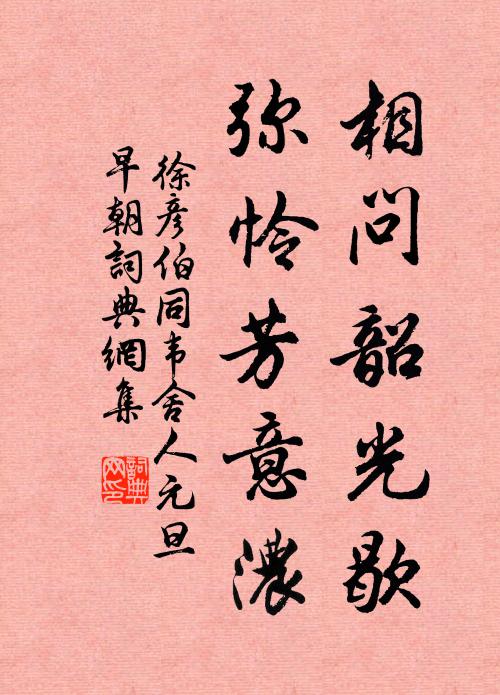 相问韶光歇
弥怜芳意濃
徐彦伯同韦舍人元旦
早朝詞典網集
詞典網印